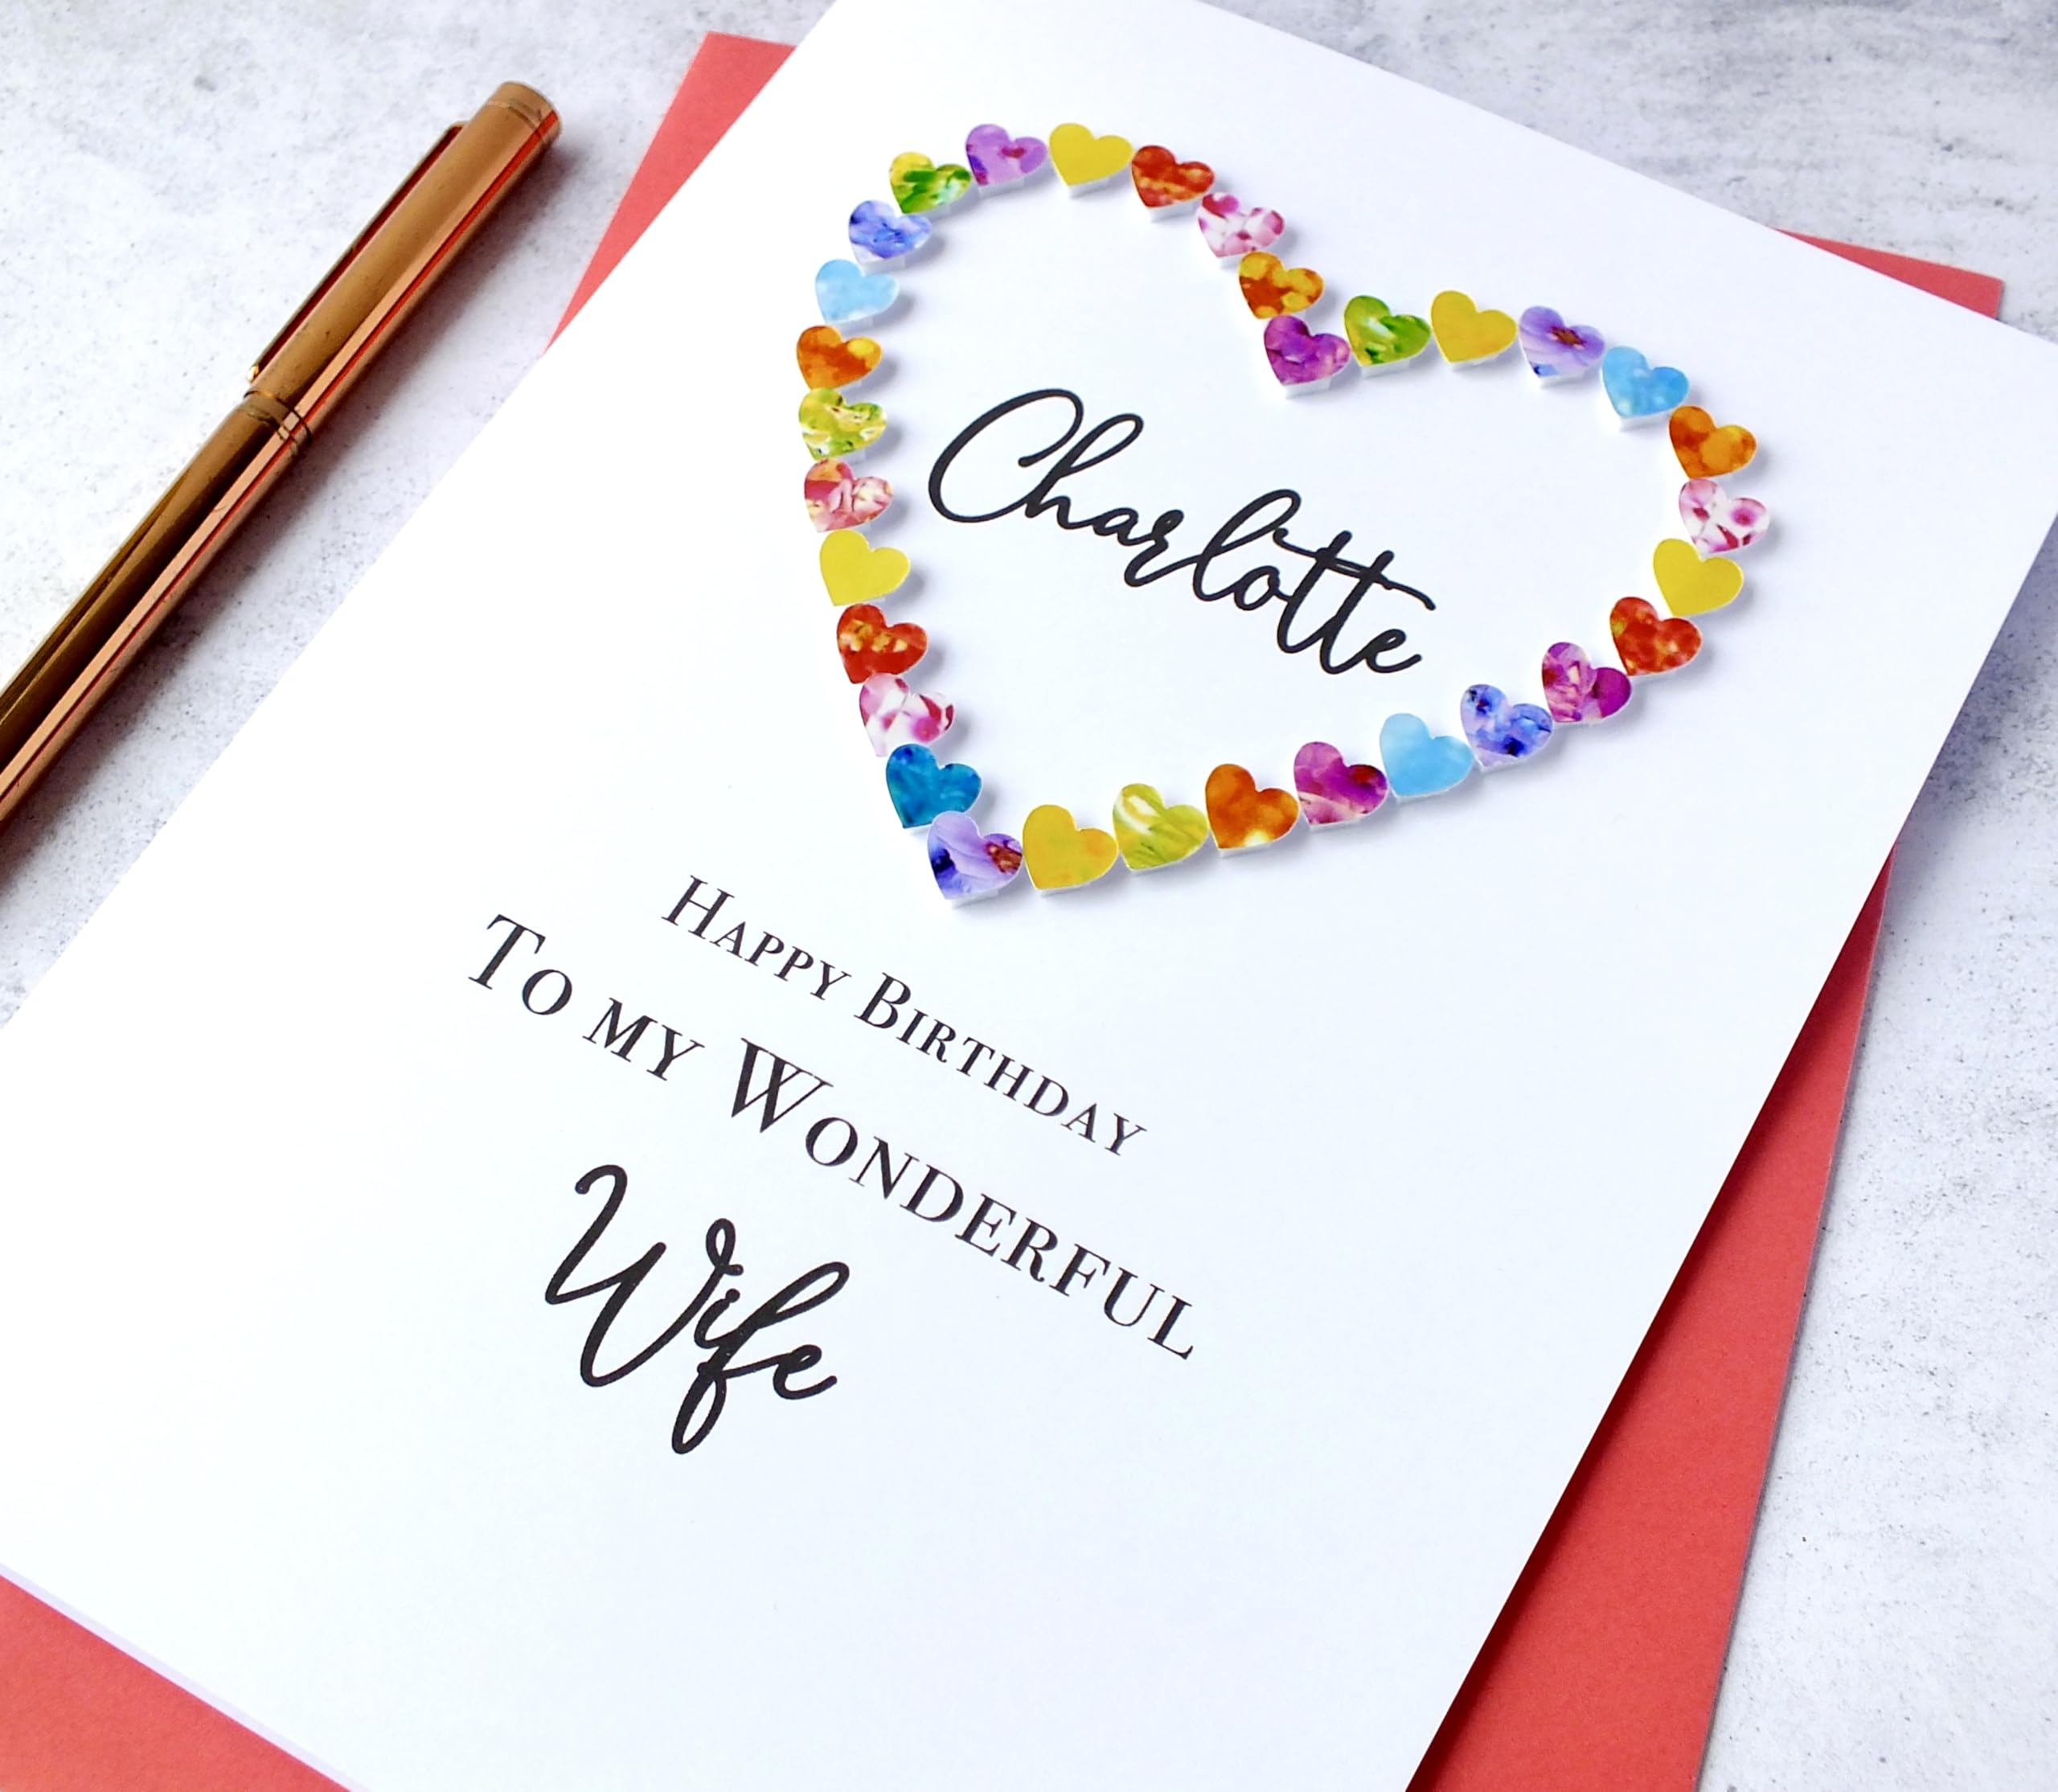 Charlotte
Happy Birthday
To my Wonderful
Wife